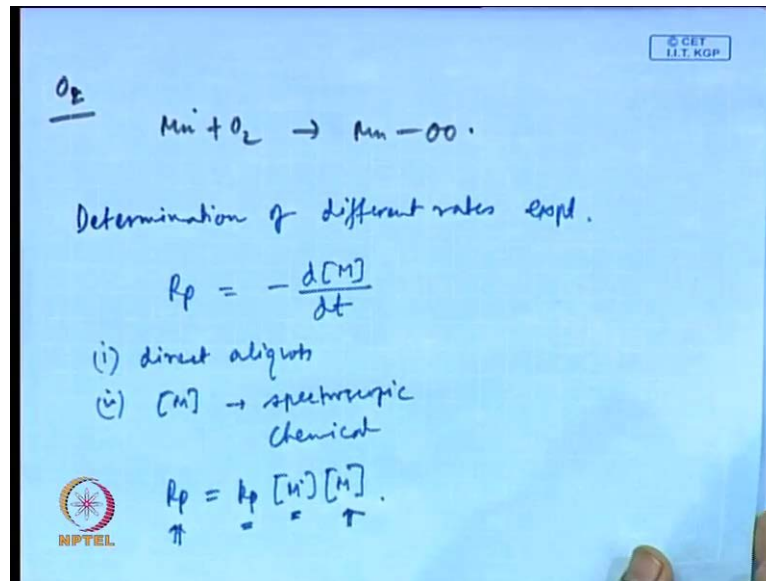 © CET
I.I.T. KGP
O2
Mn· + O2 → Mn — OO·
Determination of different rates expt.
Rp = - d[M]/dt
(i) direct aliquots
(ii) [M] → spectroscopic
chemical
Rp = kp [M·] [M].
NPTEL